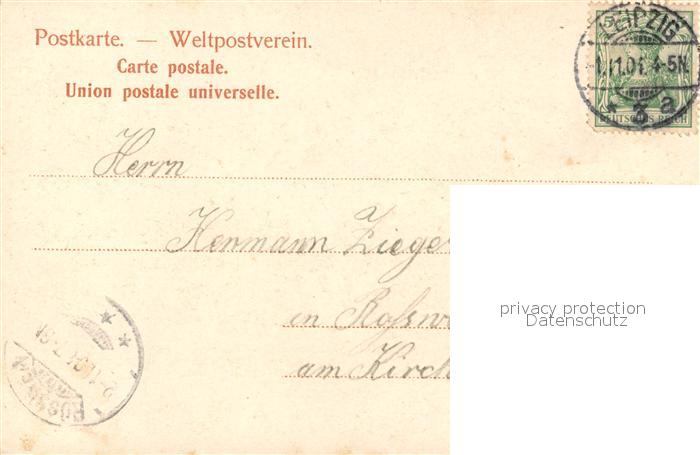 Postkarte. — Weltpostverein.
Carte postale.
Union postale universelle.
LEIPZIG
11.04. 4-5N
* 3 a
DEUTSCHES REICH
Herrn
Hermann Zieger
in Rossw
am Kirch
privacy protection
Datenschutz